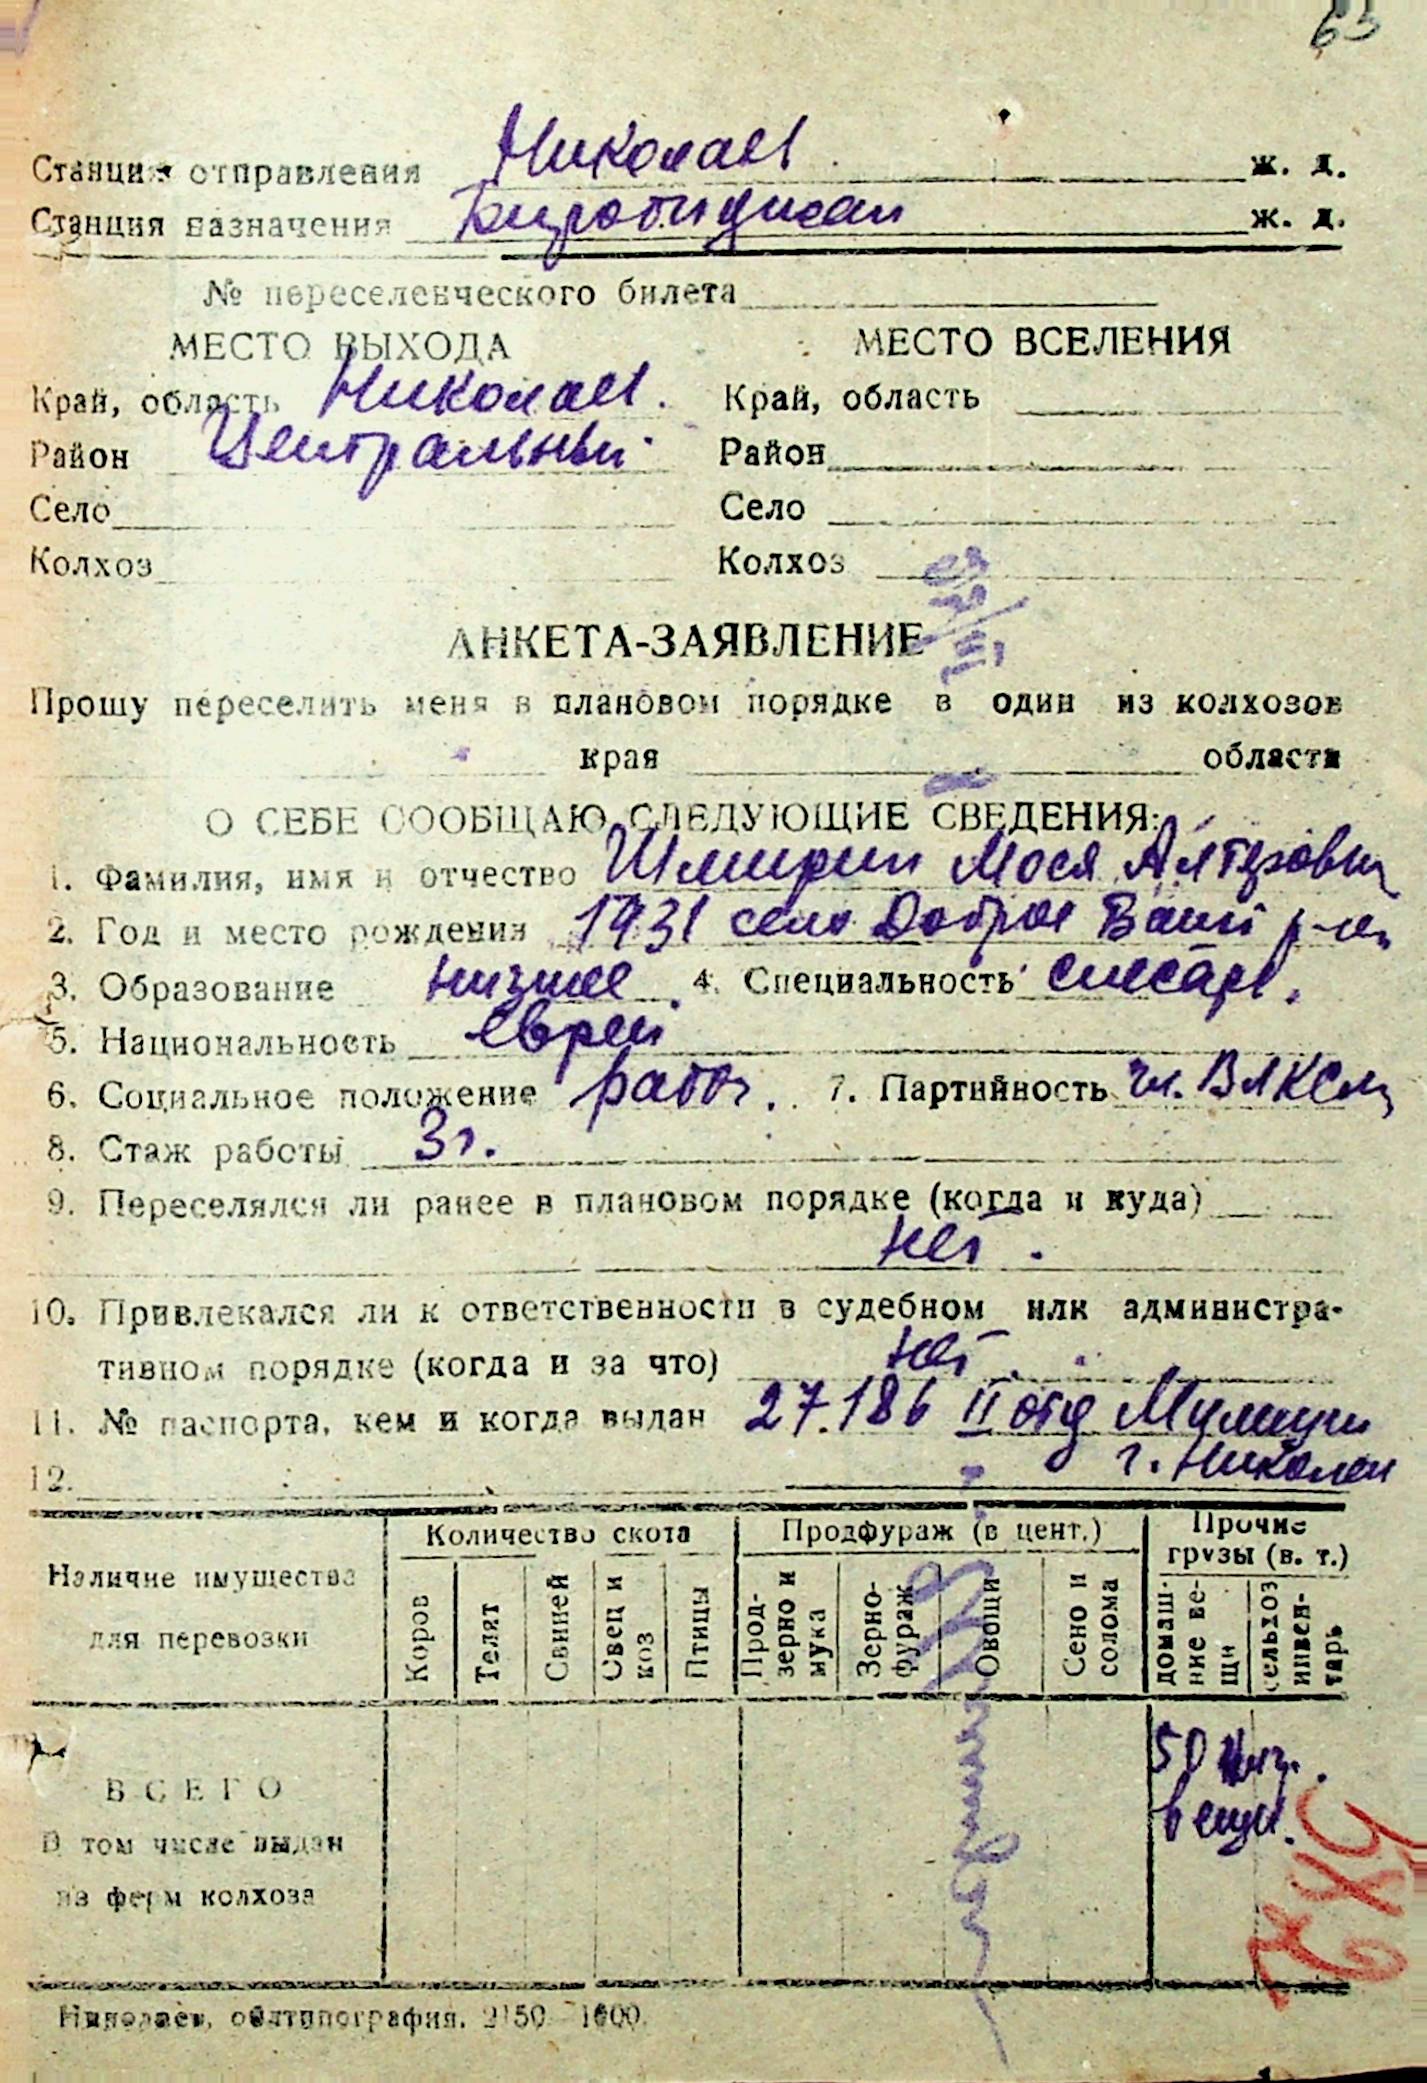 65
Станция отправления Николаев ж. д.
Станция назначения Биробиджан ж. д.
№ переселенческого билета
МЕСТО ВЫХОДА МЕСТО ВСЕЛЕНИЯ
Край, область Николаев. Край, область
Район Центральный Район
Село Село
Колхоз Колхоз
АНКЕТА-ЗАЯВЛЕНИЕ
Прошу переселить меня в плановом порядке в один из колхозов
края области
О СЕБЕ СООБЩАЮ СЛЕДУЮЩИЕ СВЕДЕНИЯ:
1. Фамилия, имя и отчество Мося Алтерович
2. Год и место рождения 1931 село Доброе р-н
3. Образование низшее 4. Специальность слесарь.
5. Национальность еврей
6. Социальное положение рабоч. 7. Партийность чл. ВЛКСМ
8. Стаж работы 3 г.
9. Переселялся ли ранее в плановом порядке (когда и куда)
нет.
10. Привлекался ли к ответственности в судебном или администра-
тивном порядке (когда и за что) нет.
11. № паспорта, кем и когда выдан 27.186 II отд Милиции
12. г. Николаев
Количество скота Продфураж (в цент.) Прочие грузы (в. т.)
Наличие имущества для перевозки Коров Телят Свиней Овец и коз Птицы Прод-зерно и мука Зерно-фураж Овощи Сено и солома домаш-ние ве-щи сельхоз инвен-тарь
ВСЕГО 50
В том числе выдан вещи.
из ферм колхоза
Николаев, облтипография. 2150—1000.